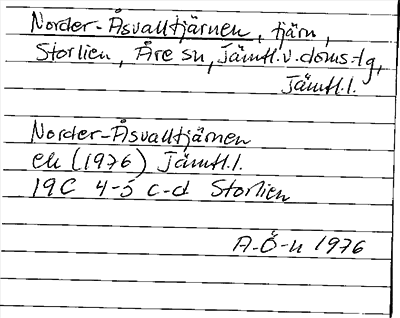 Norder-Åsvalltjärnen, tjärn,
Storlien, Åre sn, Jämtl.v.doms-lg,
Jämtl.l.
Norder-Åsvalltjärnen
ek (1976) Jämtl.l.
19C 4-5 c-d Storlien
A-Ö-n 1976